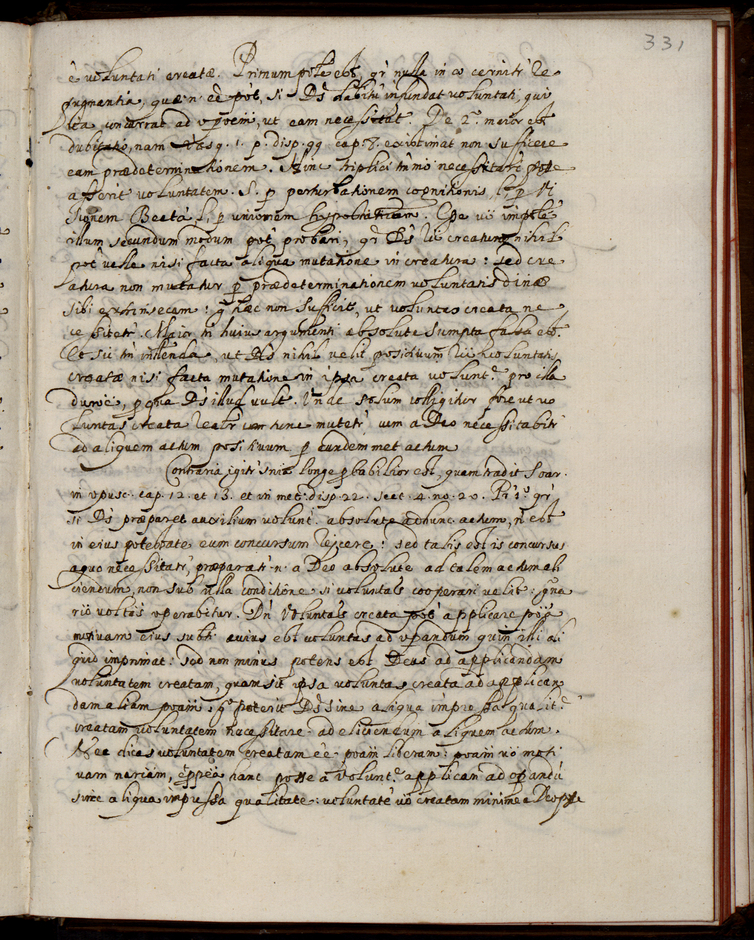 331
è voluntati creatæ. Primum potest ẽe, qr̃ nulla in eo cernitr̃ re
pugnantia, quæ n. eẽ pot, si Ds habitũ infundat voluntati, qui
ita concurrat ad operom, ut eam necessitat. De 2º. maior est
dubitatio, nam Vasq. 1. p. disp. 99. cap. 8. existimat non sufficere
eam prædeterminationem. Hinc triplici tm̃ mo necessitari posse
asserit voluntatem. S. p perturbationem cognitionis, l p Vi
sionem Beatã, l p unionem hypostaticam. Esse vo impos.le
illum secundum modum pot probari, qr̃ Ds in creatura nihil
pot velle nisi facta aliqua mutatione in creatura: sed cre
atura non mutatur p prædeterminationem voluntatis diuæ
sibi extrinsecam: g hæc non sufficit, ut voluntas creata ne
cessitetr. Maior tn huius argumenti absolute sumpta falsa est.
Et sic tn intellenda, ut Ds nihil velit positiuum in voluntati
creatæ nisi facta mutatione in ipsa creata volunt.e pro illa
duroe, p qua Ds illud vult. Unde solum colligitur fore ut vo
luntas creata realr̃ tunc mutetr̃ cum a Deo necessitabitr̃
ad aliquem actum positiuum p eundemmet actum
Contraria igitr̃ snia longe p babilior est, quam tradit Soar.
in opusc. cap. 12. et 13. et in met. disp. 22. sect. 4. no. 20. Pr̃ 1º. qr̃
si Ds præparet auxilium volunt. absolute ad hunc actum, ñ est
in eius potestate eum concursum reijcere: sed talis est is concursus
a quo necessitatr, præparatr n. a Deo absolute ad talem actum eli
ciendum, non sub illa conditione si voluntas cooperari velit: g̃ neces
rio voltas operabitur. Dñ Voluntas creata pot applicare poam
motiuam eius subti cuius est voluntas ad operandum quin illi ali
quid imprimat: sed non minus potens est Deus ad applicandam
voluntatem creatam, quam sit ipsa voluntas creata ad applican
dam aliam poam: g poterit Ds sine aliqua impressa qualit.e
creatam voluntatem necessitare ad eliciendum aliquem actum.
Nec dicas voluntatem creatam ẽe poam liberam: poam vo moti
uam nariam, et ppea hanc posse a Volunt.e applicari ad operandũ
sine aliqua impressa qualitate: voluntatẽ vo creatam minime a Deo posse